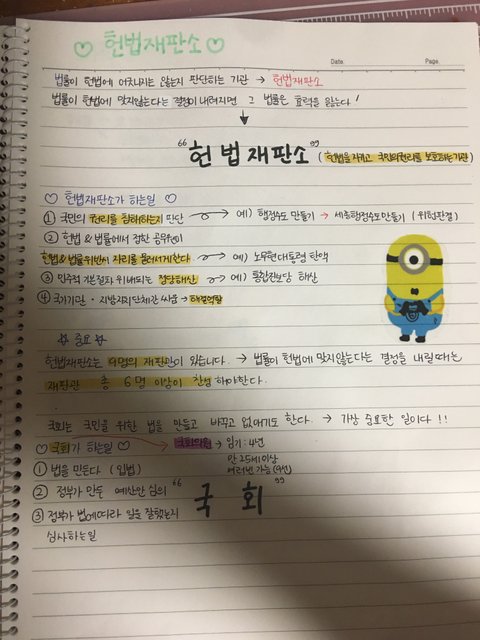 ♡ 헌법재판소 ♡
Date. Page.
법률이 헌법에 어긋나지는 않는지 판단하는 기관 → 헌법재판소
법률이 헌법에 맞지않는다는 결정이 내려지면 그 법률은 효력을 잃는다!
↓
"헌법재판소" (헌법을 지키고 국민의 권리를 보호하는 기관)
♡ 헌법재판소가 하는일 ♡
① 국민의 권리를 침해하는지 판단 → 예) 행정수도 만들기 → 세종행정수도만들기 (위헌판결)
② 헌법 & 법률에서 정한 공무원이
헌법&법률위반시 자리를 물러서게한다 → 예) 노무현대통령 탄핵
③ 민주적 기본질서 위배되는 정당해산 → 예) 통합진보당 해산
④ 국가기관 · 지방자치단체간 싸움 → 해결역할
☆ 중요 ☆
헌법재판소는 9명의 재판관이 있습니다. → 법률이 헌법에 맞지않는다는 결정을 내릴때는
재판관 총 6명 이상이 찬성 하야한다.
국회는 국민을 위한 법을 만들고 바꾸고 없애기도 한다. → 가장 중요한 일이다!!
♡ 국회가 하는일 ♡ → 국회의원 → 임기: 4년
① 법을 만든다 (입법) 만 25세이상
여러번 가능
② 정부가 만든 예산안 심의 "국회"
③ 정부가 법에따라 일을 잘했는지
심사하는일